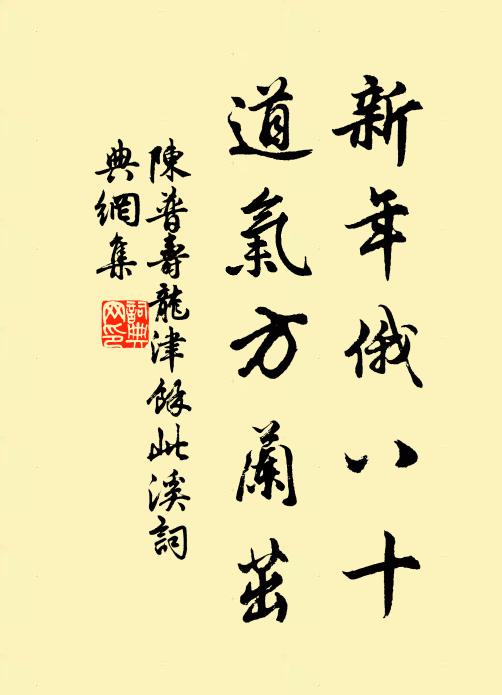 新年俄八十
道氣方蘭茁
陳普壽龍津餘此溪詞
典網集
詞典
网印